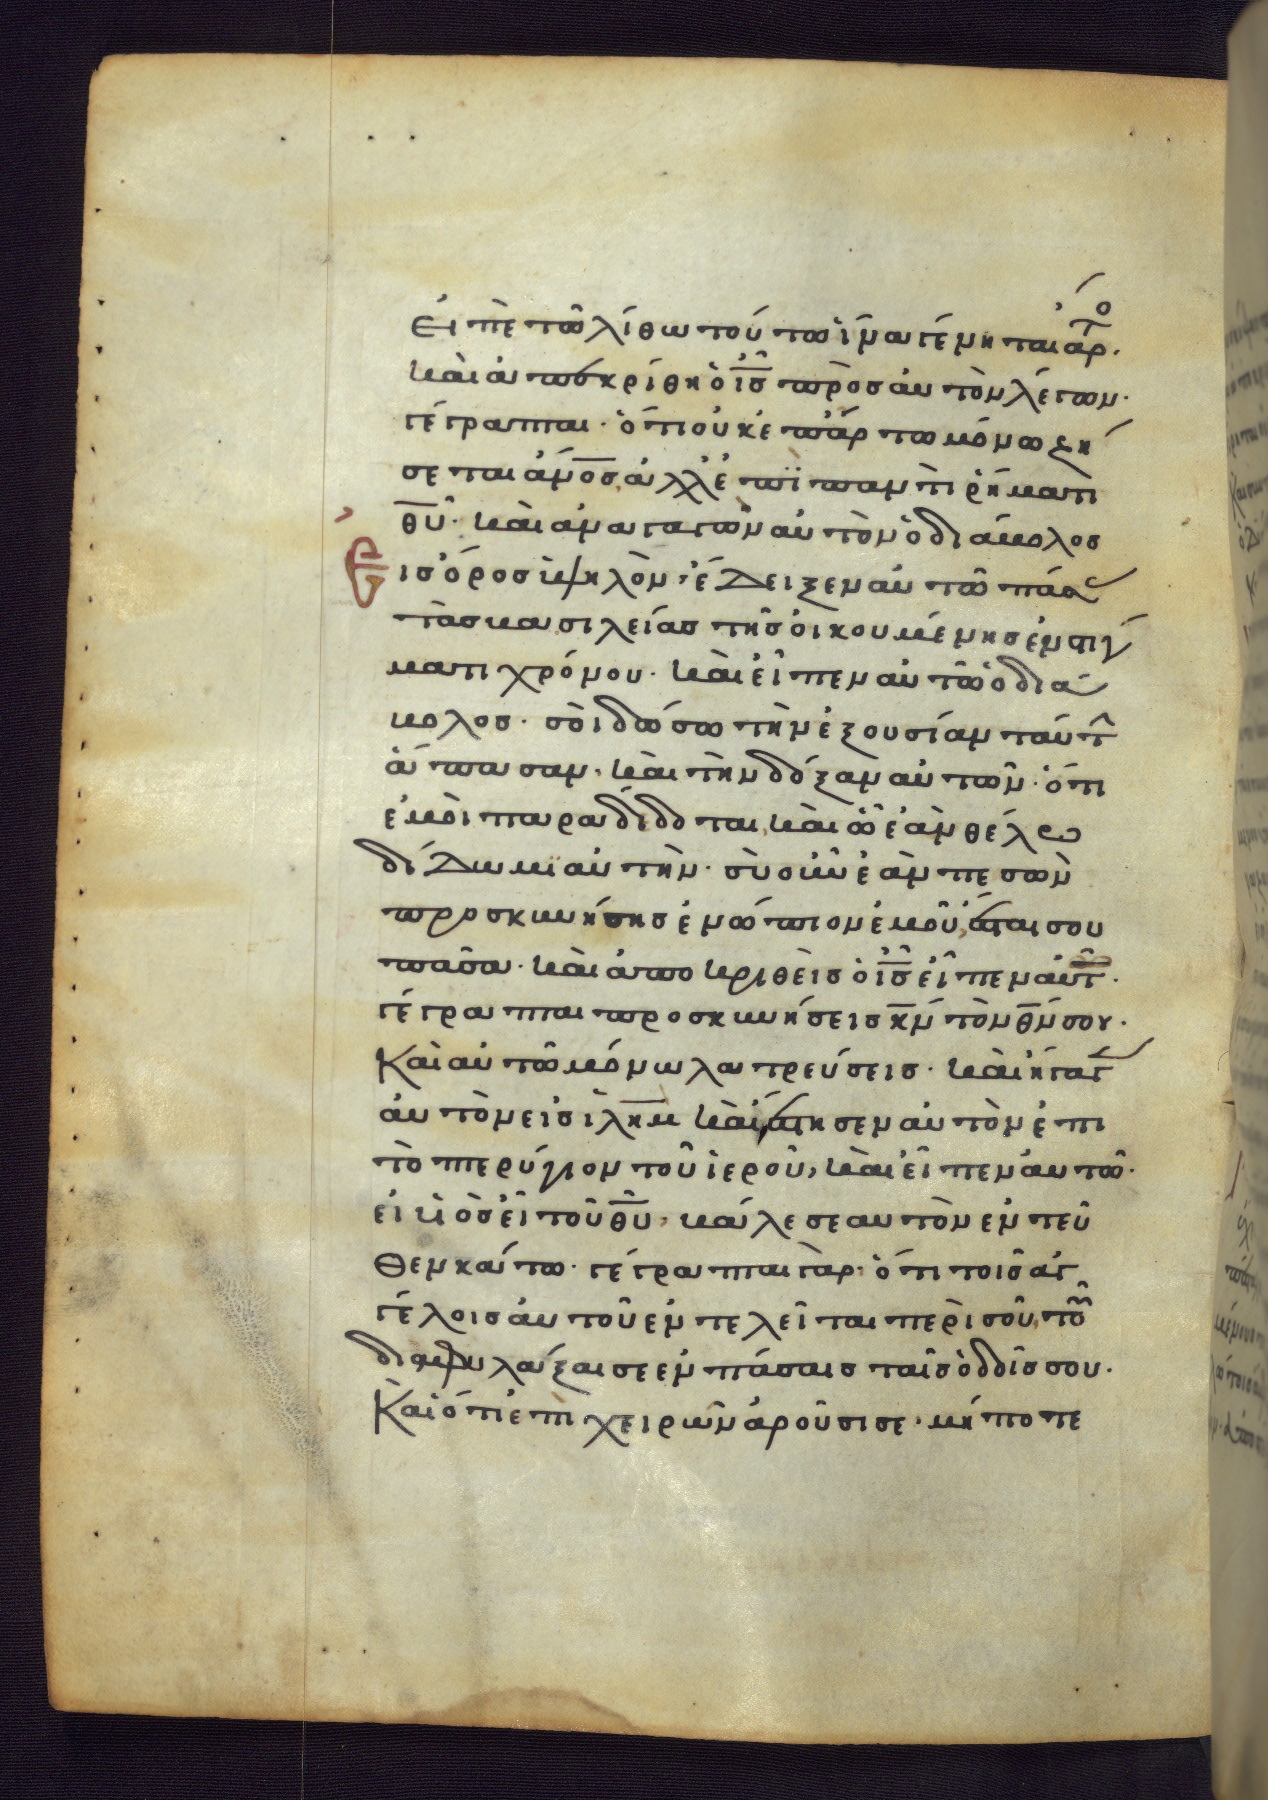 εἰπὲ τῶ λίθω τούτω ἵνα γένηται ἄρτο.
καὶ ἀπεκρίθη ὁ ις πρὸς αὐτὸν λέγων.
γέγραπται. ὅτι οὐκ ἐπ ἄρτω μόνω ζή
σεται ἄνος, ἀλλ ἐπὶ παντὶ ῥήματι
θυ. καὶ ἀναγαγὼν αὐτὸν ὁ διάβολος
εἰς ὄρος ὑψηλὸν, ἔδειξεν αὐτῶ πάσ
τὰς βασιλείας τῆς οἰκουμένης ἐν στιγ
ματι χρόνου. καὶ εἶπεν αὐτῶ ὁ διά
βολος. σὸι δώσω τὴν ἐξουσίαν ταύτ
ἅπασαν. καὶ τὴν δόξαν αὐτῶν. ὅτι
ἐμὸι παραδίδοται, καὶ ῶ ἐὰν θέλω
δίδωμι αὐτὴν. σὺ οὖν ἐὰν πεσὼν
προσκυνήσης ἐνώπιον ἐμοῦ, ἔσται σου
πᾶσα. καὶ ἀποκριθεὶς ὁ ις εἶπεν αὐτ.
γέγραπται προσκυνήσεις κν τὸν θν σου.
Καὶ αὐτῶ μόνω λατρεύσεις. καὶ ἤγαγ
αὐτὸν εἰς ιλημ καὶ ἔστησεν αὐτὸν ἐπι
τὸ πτερύγιον τοῦ ἱεροῦ, καὶ εἶπεν αὐτῶ.
εἰ υς εἶ τοῦ θυ, βάλε σεαυτὸν ἐντεῦ
θεν κάτω. γέγραπται γὰρ. ὅτι τοῖς ἀγ
γέλοις αὐτοῦ ἐντελεῖται περὶ σοῦ, τοῦ
διαφυλάξαι σε ἐν πάσαις ταῖς ὁδοῖς σου.
Καὶ ὅτι ἐπι χειρῶν ἀροῦσι σε. μή ποτε